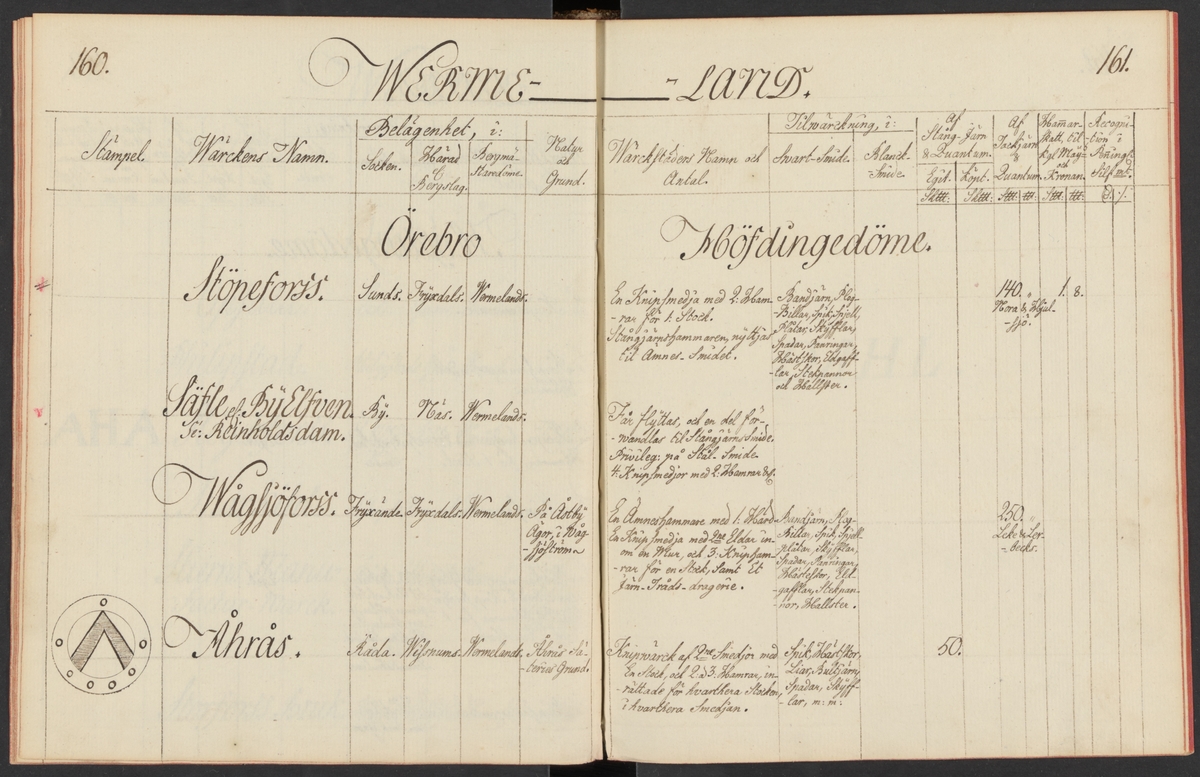 160.
161.
WERME- -LAND.
Stämpel.
Wärckens Namn.
Belägenhet, i:
Socken.
Härad
&
Bergslag.
Bergmä-
staredöme.
Natur
och
Grund.
Wärckstädens Namn och
Antal.
Tilwärckning, i:
Swart-Smide.
Blanck-
Smide.
Af
Stång-Järn
& Quantum.
Egit.
Köpt.
Af
Tackjärn
&
Quantum.
Hamar-
skatt, til
Kgl. May:
och
Kronan.
Recogni-
tion i
Peningr
Silf. mt.
Örebro Höfdingedöme.
Stöpeforss.
Sunds.
Fryxdals.
Wermelands.
En Knipsmedja med 2: Ham-
-rar för 1: Stock.
Stångjärnshammaren, nyttjas
til Ämnes-Smidet.
Bandjärn, Plog-
-Billar, Spik, Spjell,
Plåtar, Skyfflar,
Spadar, Panringar,
Hästskor, Eldgaff-
lar, Stekpannor
och Hallster.
140.
Nora & Hjul-
-sjö.
1. 8.
Säfle, el. By Elfven.
Se: Reinholdsdam.
By.
Näs.
Wermelands.
Får flyttas, och en del för-
-wandlas til Stångjärns Smide.
Privileg: på Stål-Smide.
4: Knipsmedjor med 2: Hamrar
Wågsjöforss.
Fryxände.
Fryxdals.
Wermelands.
På Åstby
Ägor, i Wåg-
-sjöströmen
En Ämneshammare med 1: Härd
En Knipsmedja med 2ne Eldar in-
om en Mur, och 3: Kniphamrar-
-rar för en Stock, Samt Et
Järn-Tråds-dragerie.
Bandjärn, Plog-
Billar, Spik, Spjell-
plåtar, Skyfflar,
Spadar, Panringar,
Hästskor, Eld-
-gafflar, Stekpan-
-nor, Hallster.
250.
Leke & Ler-
-becks.
Åhrås.
Råda.
Wisnums.
Wermelands.
Åhrås Sä-
-teries Grund.
Knipwärck af 2ne Smedjor med
En Stock, och 2 à 3: Hamrar, in-
-rättade för hvarthera Stocken,
i hvarthera Smedjan.
Spik, Hästskor,
Liar, Bultjärn,
Spadar, Skyff-
-lar, m: m:
50.